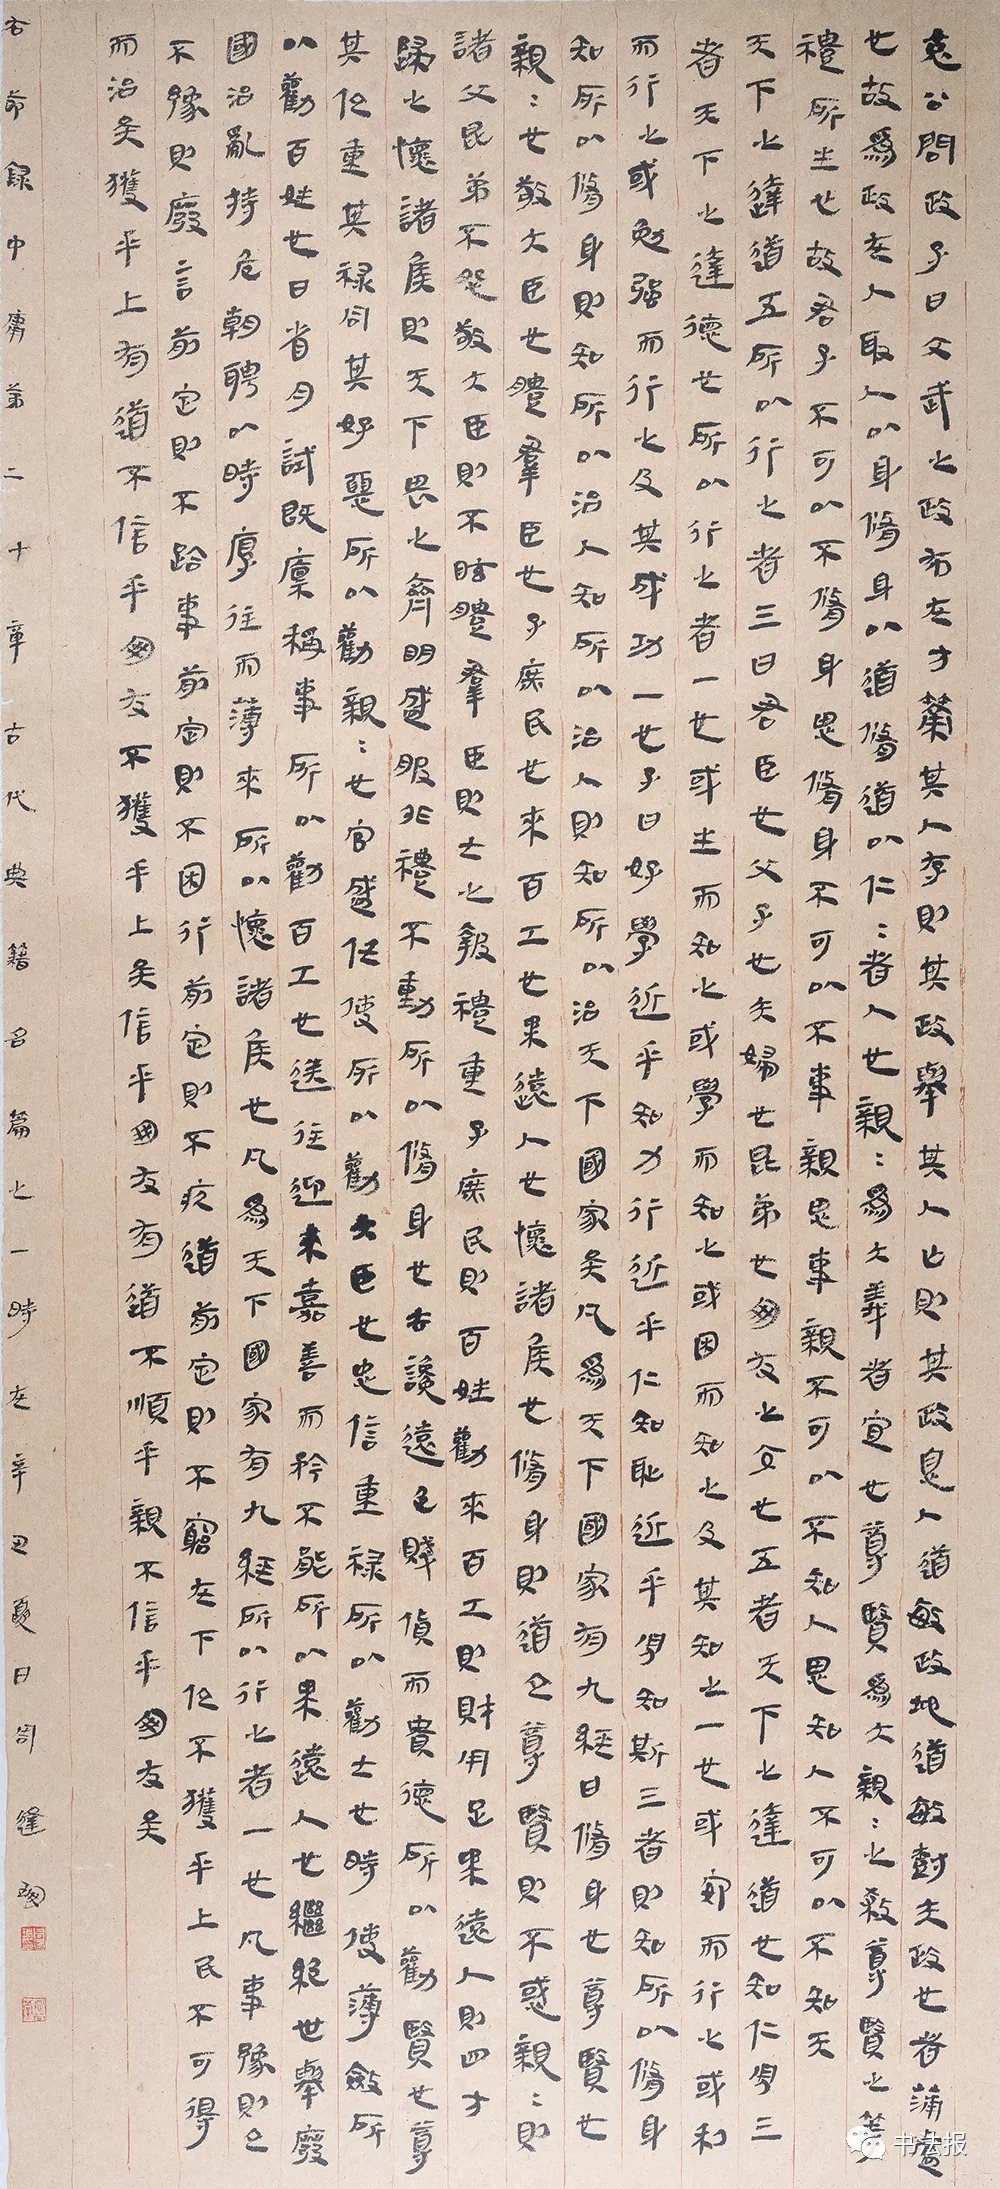 哀公問政子曰文武之政布在方策其人存則其政舉其人亡則其政息人道敏政地道敏樹夫政也者蒲盧
也故為政在人取人以身脩身以道脩道以仁〻者人也親〻為大義者宜也尊賢為大親〻之殺尊賢之等
禮所生也故君子不可以不脩身思脩身不可以不事親思事親不可以不知人思知人不可以不知天
天下之達道五所以行之者三曰君臣也父子也夫婦也昆弟也朋友之交也五者天下之達道也知仁勇三
者天下之達德也所以行之者一也或生而知之或學而知之或困而知之及其知之一也或安而行之或利
而行之或勉強而行之及其成功一也子曰好學近乎知力行近乎仁知恥近乎勇知斯三者則知所以脩身
知所以脩身則知所以治人知所以治人則知所以治天下國家矣凡為天下國家有九經曰脩身也尊賢也
親〻也敬大臣也體羣臣也子庶民也來百工也柔遠人也懷諸侯也脩身則道立尊賢則不惑親〻則
諸父昆弟不怨敬大臣則不眩體羣臣則士之報禮重子庶民則百姓勸來百工則財用足柔遠人則四方
歸之懷諸侯則天下畏之齊明盛服非禮不動所以脩身也去讒遠色賤貨而貴德所以勸賢也尊
其位重其祿同其好惡所以勸親〻也官盛任使所以勸大臣也忠信重祿所以勸士也時使薄斂所
以勸百姓也日省月試既廩稱事所以勸百工也送往迎來嘉善而矜不能所以柔遠人也繼絕世舉廢
國治亂持危朝聘以時厚往而薄來所以懷諸侯也凡為天下國家有九經所以行之者一也凡事豫則立
不豫則廢言前定則不跲事前定則不困行前定則不疚道前定則不窮在下位不獲乎上民不可得
而治矣獲乎上有道不信乎朋友不獲乎上矣信乎朋友有道不順乎親不信乎朋友矣
右節錄中庸第二十章古代典籍名篇之一時在辛丑夏日周逢
书法报